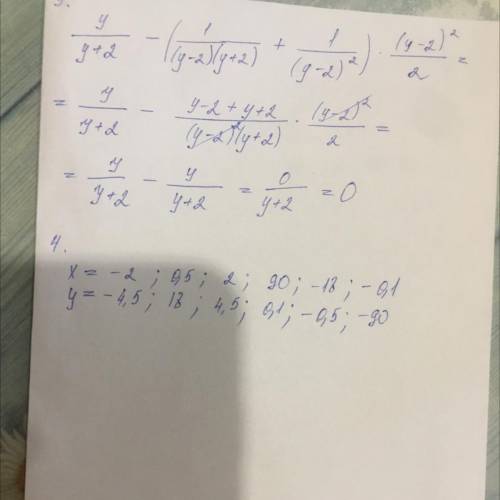 3.
y/(y+2) − (1/((y−2)(y+2)) + 1/(y−2)²) · (y−2)²/2 =
= y/(y+2) − (y−2+y+2)/((y−2)²(y+2)) · (y−2)²/2 =
= y/(y+2) − y/(y+2) = 0/(y+2) = 0
4.
x = −2 ; 0,5 ; 2 ; 90 ; −18 ; −0,1
y = −4,5 ; 18 ; 4,5 ; 0,1 ; −0,5 ; −90